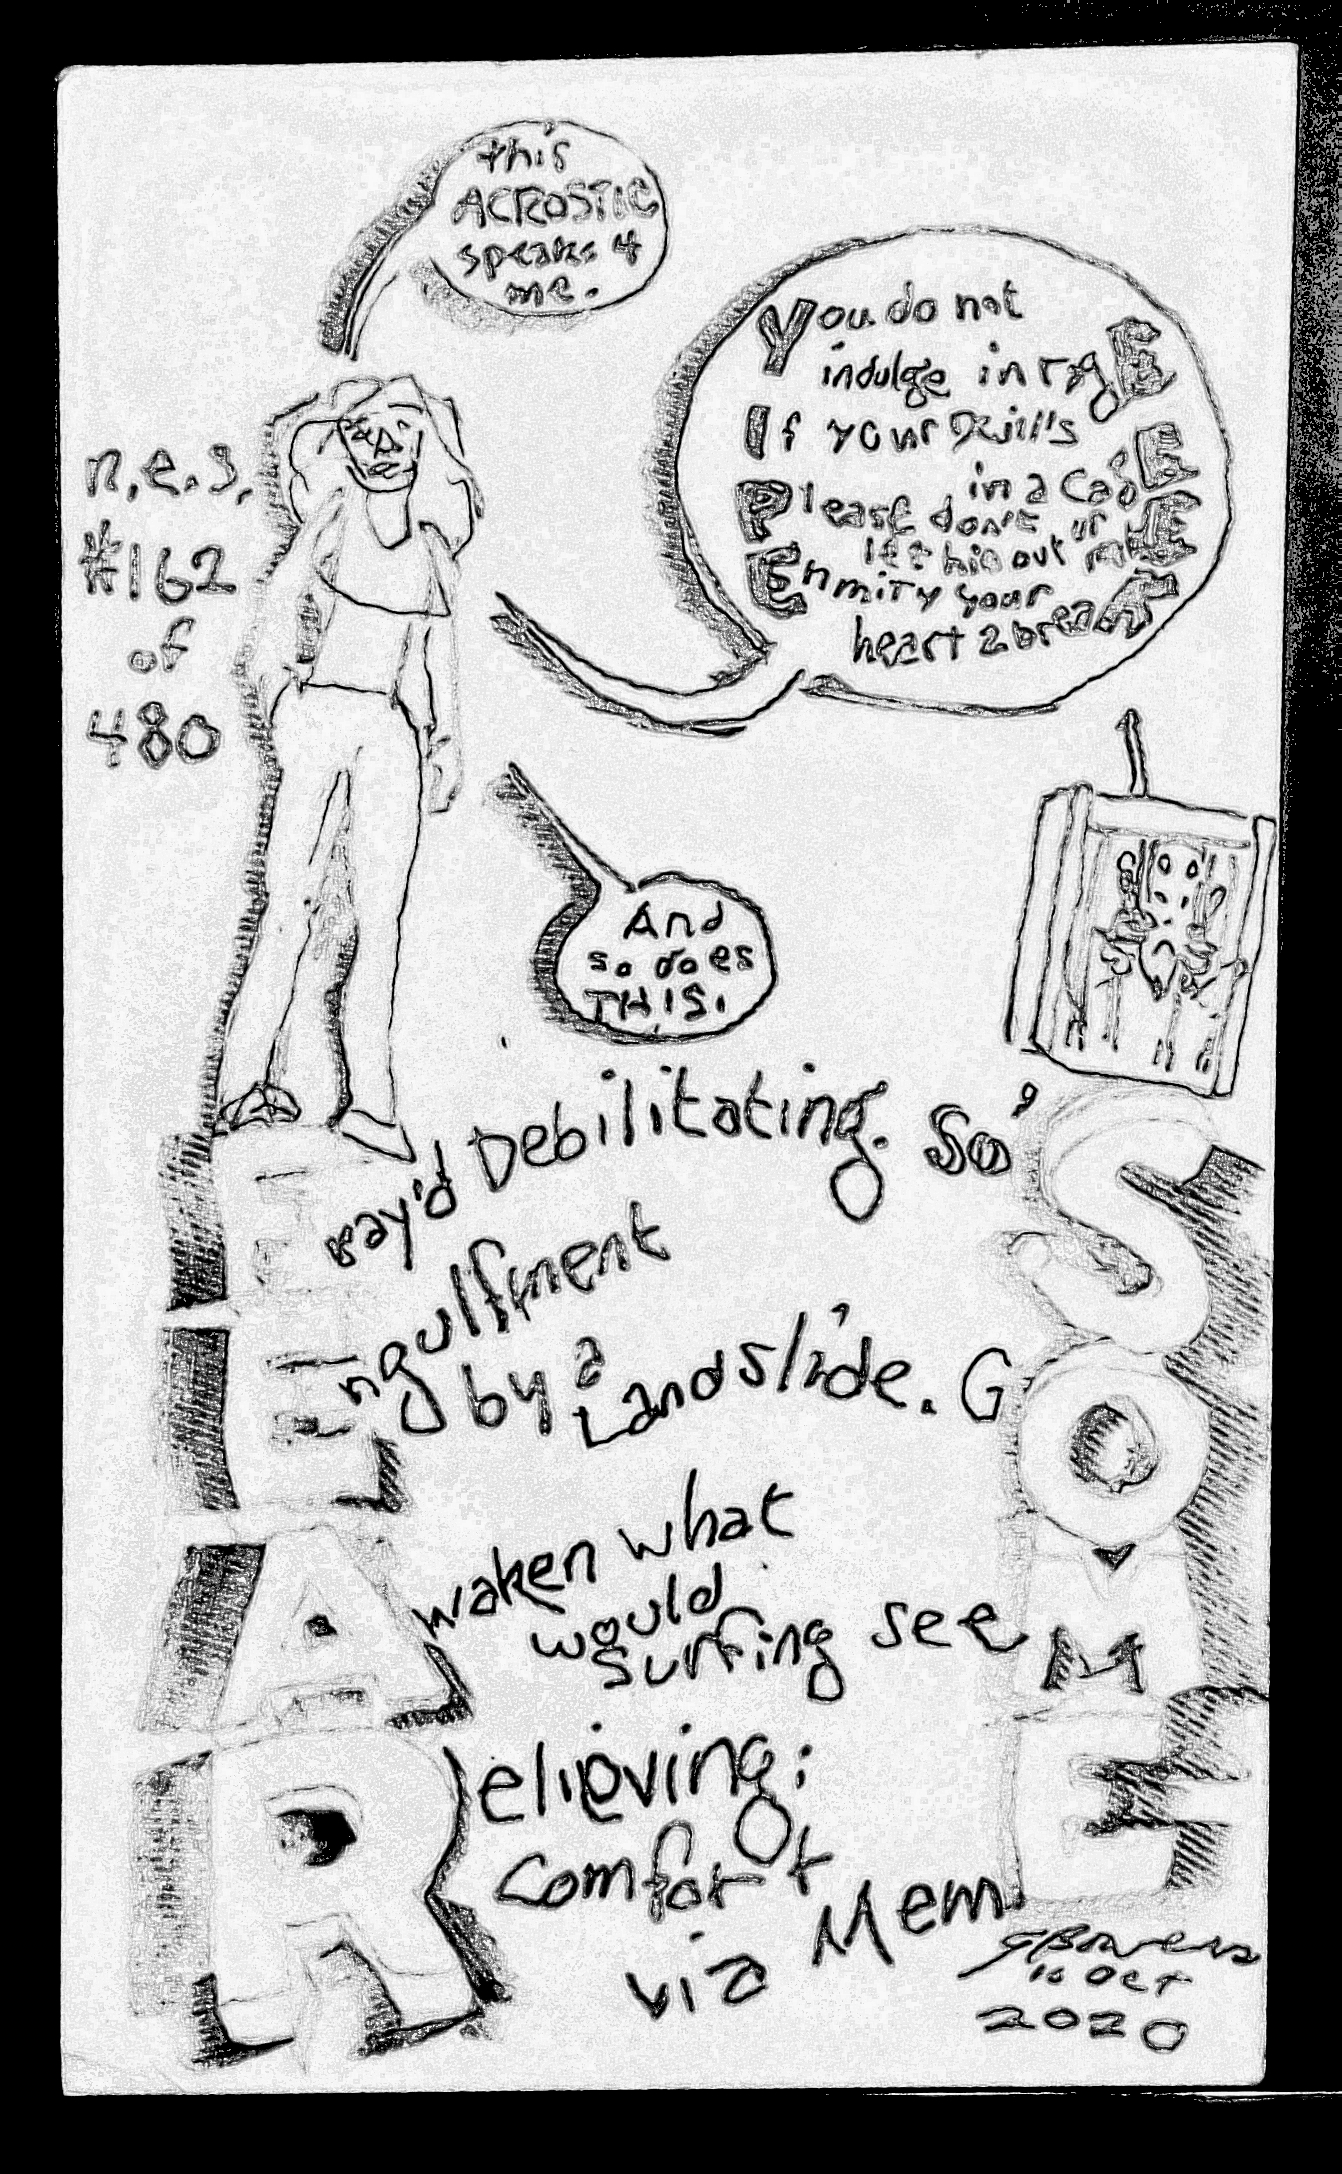 this
ACROSTIC
speaks 4
me.
You do not
indulge in ragE
If your Devil's
in a CagE
Please don't
let him out
Enmity your
heart 2 break
n.e.s.
#162
of
480
And
so does
THIS:
ray'd Debilitating. So'S
Engulfment
by a Landslide. GO
Awaken what
would
surfing see M
Relieving:
Comfort
via MemE
GBowers
10 Oct
2020